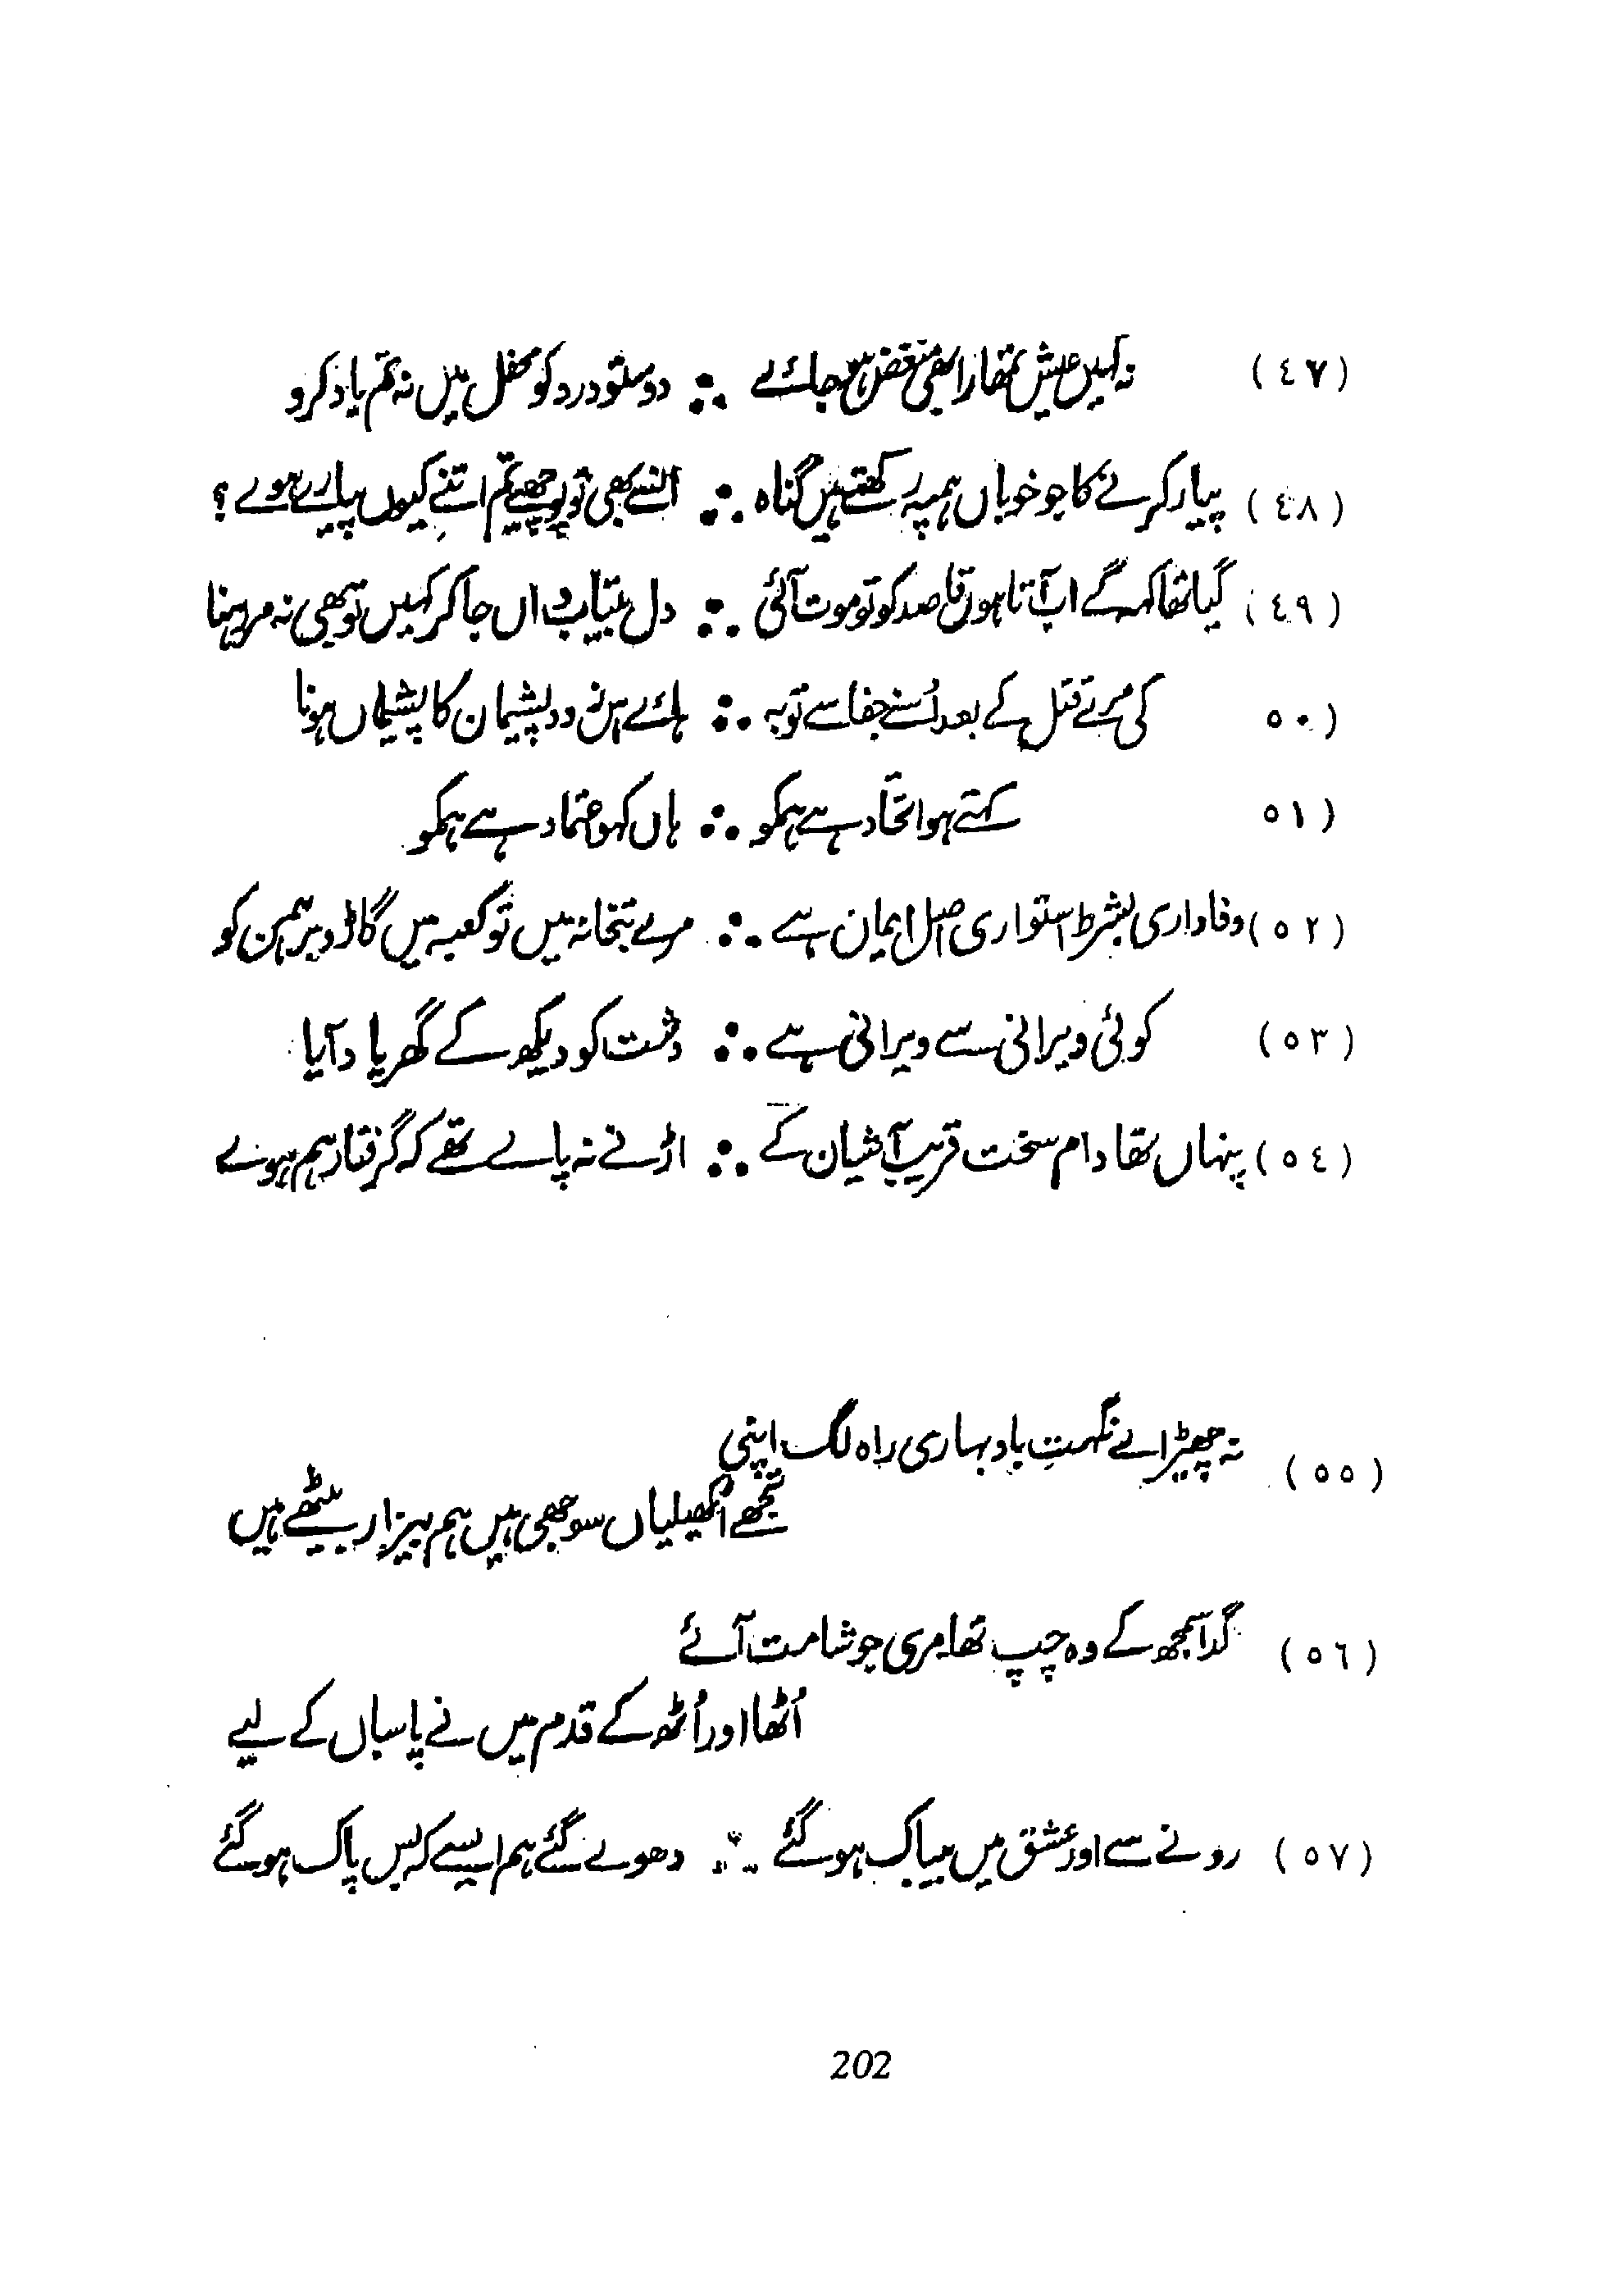 (٤٧) نہ کہیں عیش تمھارا بھی منغض ہو جائے ∴ دوستو درد کو محفل میں نہ تم یاد کرو
(٤٨) پیار کرنے کا جو خوباں ہم پہ رکھتے ہیں گناہ ∴ انسے بھی تو پوچھیے تم اتنے کیوں پیارے ہوے ؟
(٤٩) گیا تھا کہہ کے اب آتا ہوں قاصد کو تو موت آئی ∴ دل بیتاب واں جا کر کہیں تو بھی نہ مر رہنا
٥٠) کی مرے قتل کے بعد اُسنے جفا سے توبہ ∴ ہائے اس زود پشیمان کا پشیماں ہونا
٥١) کہتے ہو اتحّاد ہے ہمکو ∴ ہاں کہو اعتماد ہے ہمکو
(٥٢) وفاداری بشرط استواری اصل ایمان ہے ∴ مرے بتخانہ میں تو کعبہ میں گاڈو برہمن کو
(٥٣) کوئی ویرانی سے ویرانی ہے ∴ دشت کو دیکھ کے گھر یاد آیا
(٥٤) پنہاں تھا دام سخت قریب آشیان کے ∴ اڑنے نہ پاے تھے کہ گرفتار ہم ہوے
(٥٥) نہ چھیڑ اے نگہتِ باد بہاری راہ لگ اپنی
تجھے اٹھکھیلیاں سوجھی ہیں ہم بیزار بیٹھے ہیں
(٥٦) گدا سمجھ کے وہ چپ تھا مری جو شامت آئے
اُٹھا اور اُٹھ کے قدم میں نے پاسباں کے لیے
(٥٧) رونے سے اور عشق میں بیباک ہو گئے ∴ دھوے گئے ہم ایسے کہ بس پاک ہو گئے
202